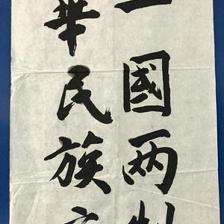 一國两制
華民族